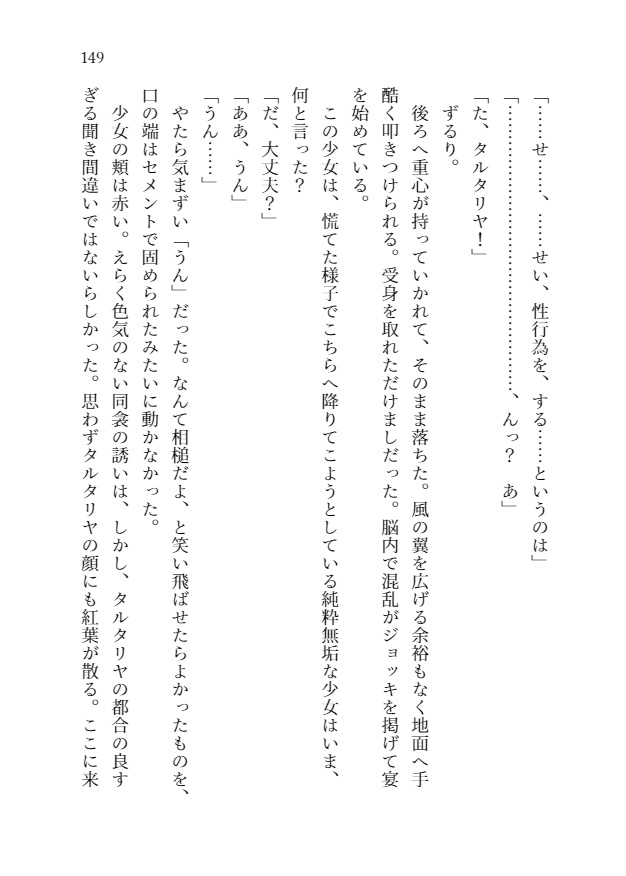 149
「……せ……、……せい、性行為を、する……というのは」
「……………………………………、んっ？　あ」
「た、タルタリヤ！」
ずるり。
後ろへ重心が持っていかれて、そのまま落ちた。風の翼を広げる余裕もなく地面へ手
酷く叩きつけられる。受身を取れただけましだった。脳内で混乱がジョッキを掲げて宴
を始めている。
この少女は、慌てた様子でこちらへ降りてこようとしている純粋無垢な少女はいま、
何と言った？
「だ、大丈夫？」
「ああ、うん」
「うん……」
やたら気まずい「うん」だった。なんて相槌だよ、と笑い飛ばせたらよかったものを、
口の端はセメントで固められたみたいに動かなかった。
少女の頬は赤い。えらく色気のない同衾の誘いは、しかし、タルタリヤの都合の良す
ぎる聞き間違いではないらしかった。思わずタルタリヤの顔にも紅葉が散る。ここに来